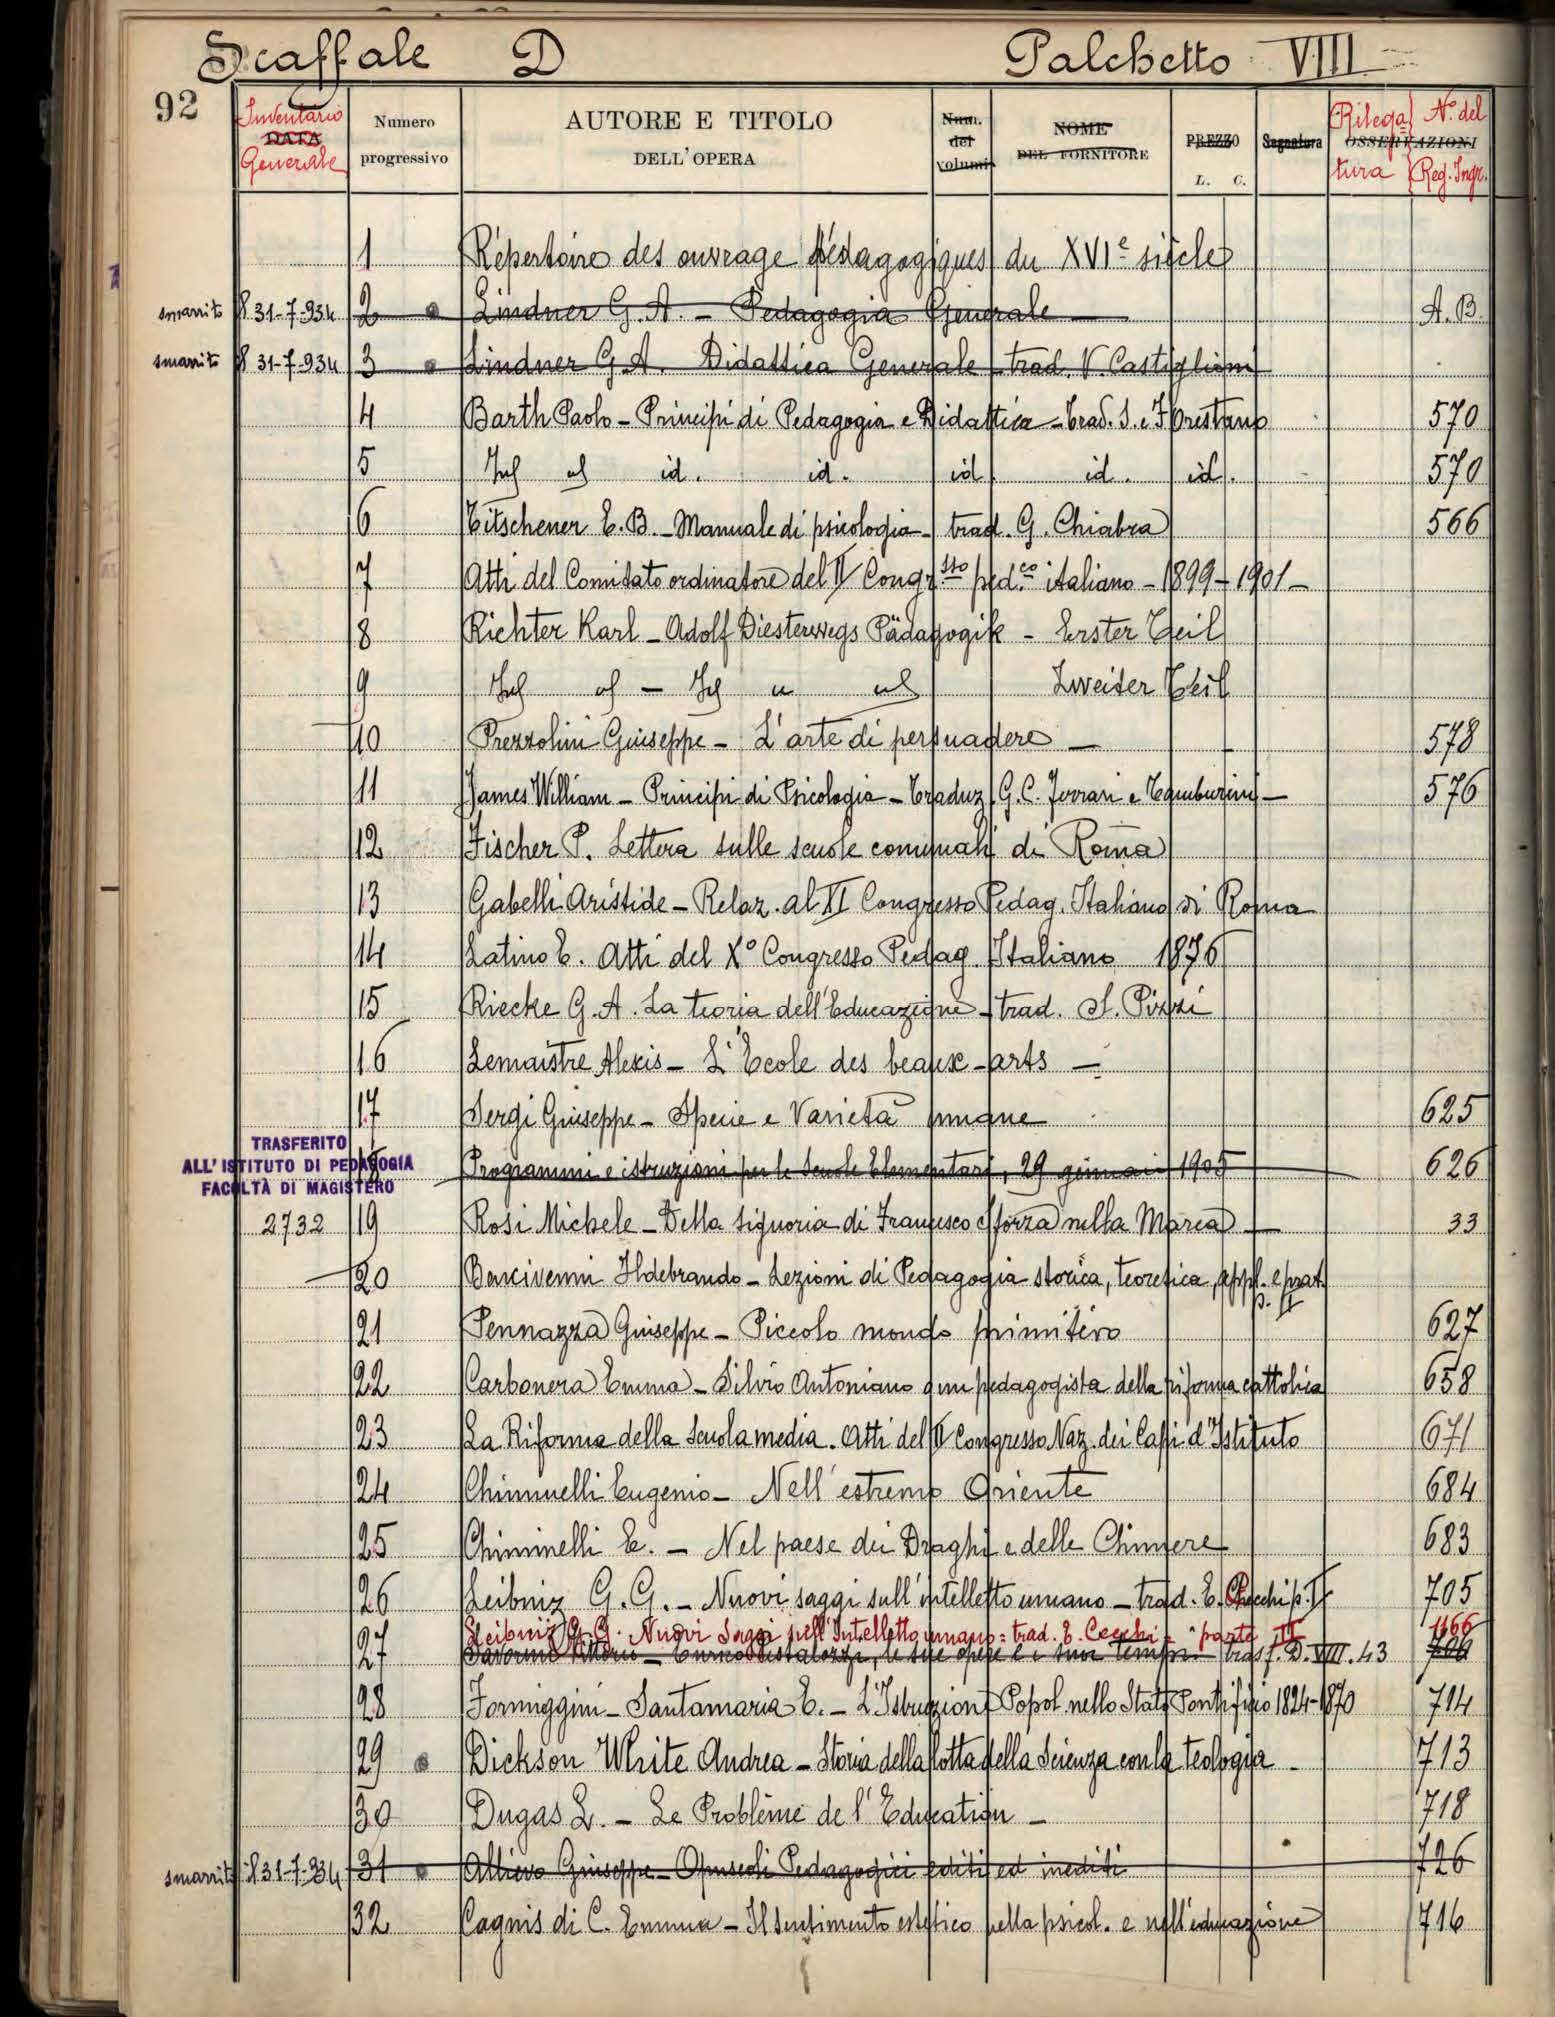 Scaffale D Palchetto VIII
92
Inventario Generale DATA
Numero progressivo
AUTORE E TITOLO DELL'OPERA
Num. dei volumi
NOME DEL FORNITORE
PREZZO L. C.
Segnatura
OSSERVAZIONI
Rilegatura
No. del Reg. Ingr.
1 Répertoire des ouvrage pédagogiques du XVIe siècle
smarrito il 31-7-934 2 Lindner G. A. - Pedagogia Generale - A.B.
smarrito il 31-7-934 3 Lindner G. A. Didattica Generale trad. V. Castiglioni
4 Barth Paolo - Principi di Pedagogia e Didattica - trad. S. e F. Orestano 570
5 id. id. id. id. id. 570
6 Titschener E. B. - Manuale di psicologia - trad. G. Chiabra 566
7 Atti del Comitato ordinatore del II Congrsso ped.co italiano - 1899-1901 -
8 Richter Karl - Adolf Diesterwegs Pädagogik - Erster Teil
9 Zweiter Teil
10 Prezzolini Giuseppe - L'arte di persuadere - 578
11 James William - Principi di Psicologia - Traduz. G. C. Ferrari e Tamburini - 576
12 Fischer P. Lettera sulle scuole comunali di Roma
13 Gabelli Aristide - Relaz. al XI Congresso Pedag. Italiano di Roma
14 Latino E. Atti del X° Congresso Pedag. Italiano 1876
15 Riecke G. A. La teoria dell'Educazione - trad. I. Pizzi
16 Lemaistre Alexis - L'Ecole des beaux-arts -
17 Sergi Giuseppe - Specie e Varietà umane 625
TRASFERITO
ALL'ISTITUTO DI PEDAGOGIA
FACOLTÀ DI MAGISTERO
18 Programmi e istruzioni per le Scuole Elementari, 29 gennaio 1905 626
2732 19 Rosi Michele - Della Signoria di Francesco Sforza nella Marca - 33
20 Bencivenni Ildebrando - Lezioni di Pedagogia storica, teoretica, appl. e prat.
p. II
21 Pennazza Giuseppe - Piccolo mondo primitivo 627
22 Carbonera Emma - Silvio Antoniano o un pedagogista della riforma cattolica 658
23 La Riforma della Scuola media. Atti del II Congresso Naz. dei Capi d'Istituto 671
24 Chiminelli Eugenio - Nell'estremo Oriente 684
25 Chiminelli E. - Nel paese dei Draghi e delle Chimere 683
26 Leibniz G. G. - Nuovi saggi sull'intelletto umano - trad. E. Cecchi p. I 705
Leibniz G. G. Nuovi Saggi sull'Intelletto umano = trad. E. Cecchi - parte II 1166
27 Savorini Vittorio - Enrico Pestalozzi, le sue opere e i suoi tempi - trasf. D. VIII. 43 706
28 Formiggini-Santamaria E. - L'Istruzione Popol. nello Stato Pontificio 1824-1870 714
29 Dickson White Andrea - Storia della lotta della Scienza con la teologia - 713
30 Dugas L. - Le Problème de l'Education - 718
smarrito il 31-7-934 31 Allievo Giuseppe - Opuscoli Pedagogici editi ed inediti 726
32 Cagnis di C. Emma - Il sentimento estetico nella psicol. e nell'educazione 716